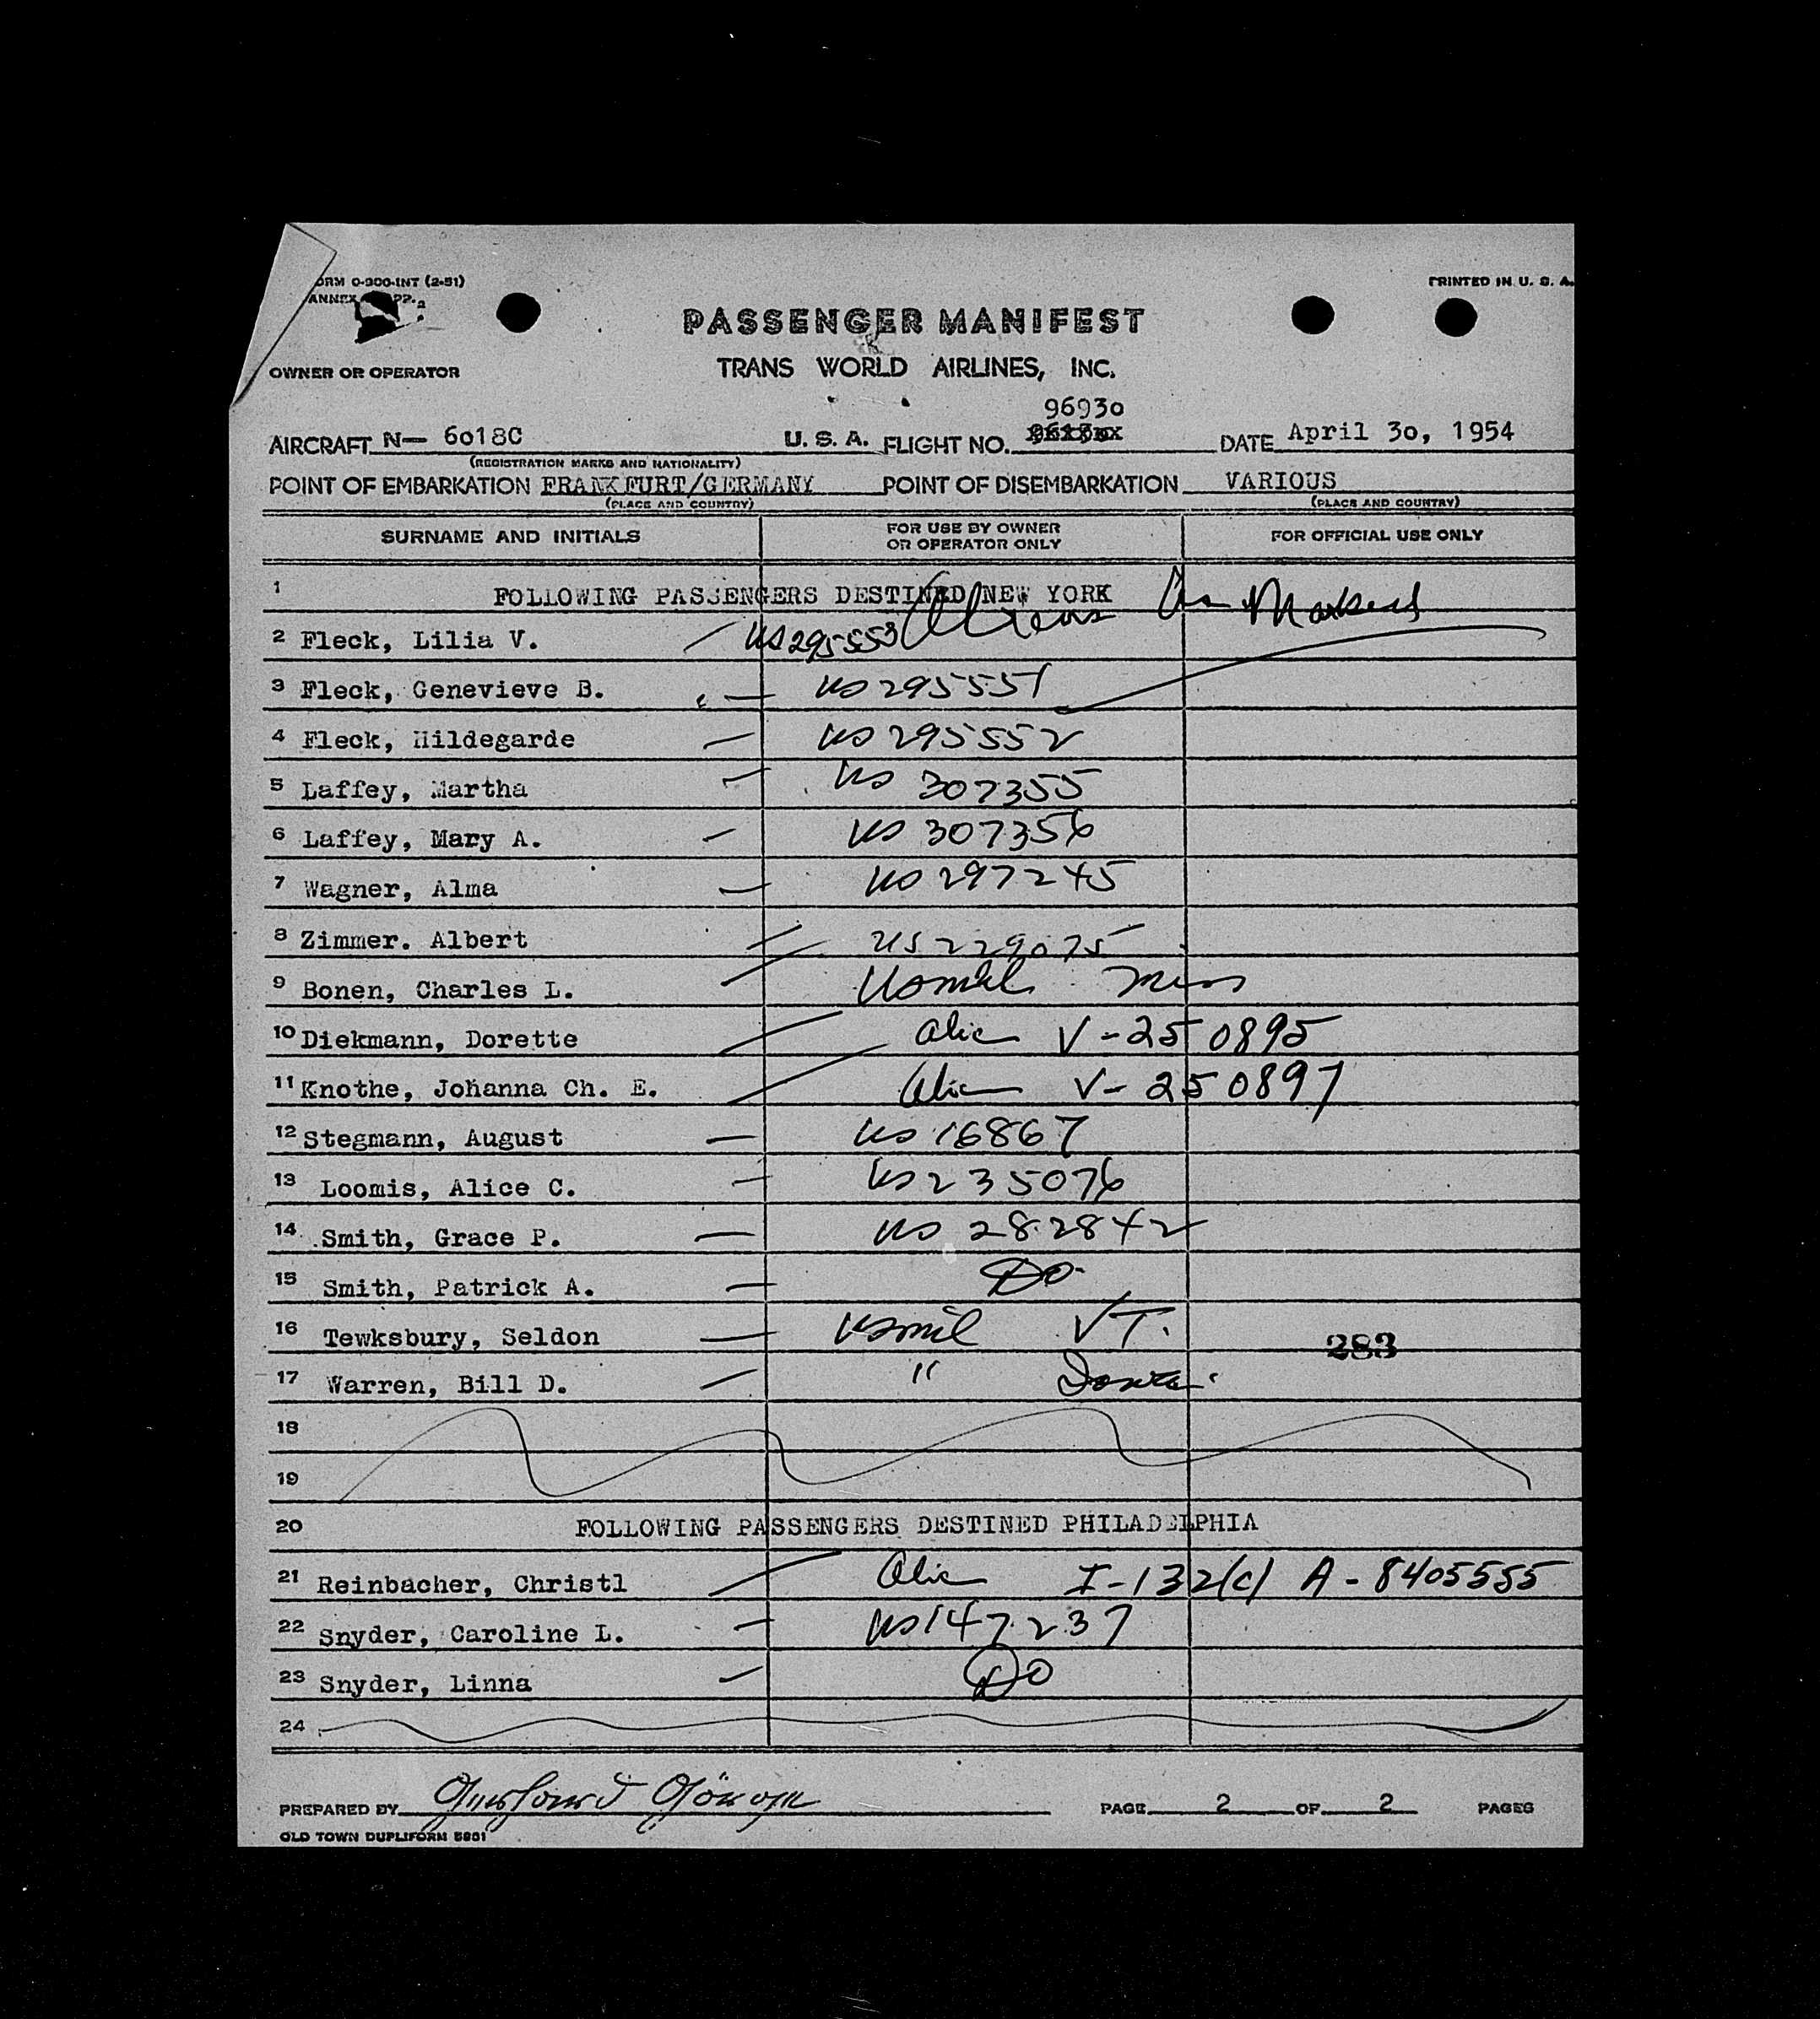 ORM O-300-INT (2-51)
PRINTED IN U. S. A.
ANNEX PP. 2
PASSENGER MANIFEST
OWNER OR OPERATOR
TRANS WORLD AIRLINES, INC.
96930
AIRCRAFT N— 6018C U. S. A. FLIGHT NO. DATE April 30, 1954
(REGISTRATION MARKS AND NATIONALITY)
POINT OF EMBARKATION FRANKFURT/GERMANY POINT OF DISEMBARKATION VARIOUS
(PLACE AND COUNTRY) (PLACE AND COUNTRY)
SURNAME AND INITIALS FOR USE BY OWNER OR OPERATOR ONLY FOR OFFICIAL USE ONLY
1 FOLLOWING PASSENGERS DESTINED NEW YORK
2 Fleck, Lilia V. US 295553
3 Fleck, Genevieve B. US 295551
4 Fleck, Hildegarde US 295552
5 Laffey, Martha US 307355
6 Laffey, Mary A. US 307356
7 Wagner, Alma US 297245
8 Zimmer. Albert US 229075
9 Bonen, Charles L. US mil
10 Diekmann, Dorette alien V-250895
11 Knothe, Johanna Ch. E. Alien V-250897
12 Stegmann, August US 16867
13 Loomis, Alice C. US 235076
14 Smith, Grace P. US 282842
15 Smith, Patrick A. Do
16 Tewksbury, Seldon US mil VT.
283
17 Warren, Bill D. "
18
19
20 FOLLOWING PASSENGERS DESTINED PHILADELPHIA
21 Reinbacher, Christl Alien I-132(c) A-8405555
22 Snyder, Caroline L. US 147237
23 Snyder, Linna Do
24
PREPARED BY PAGE 2 OF 2 PAGES
OLD TOWN DUPLIFORM 5801